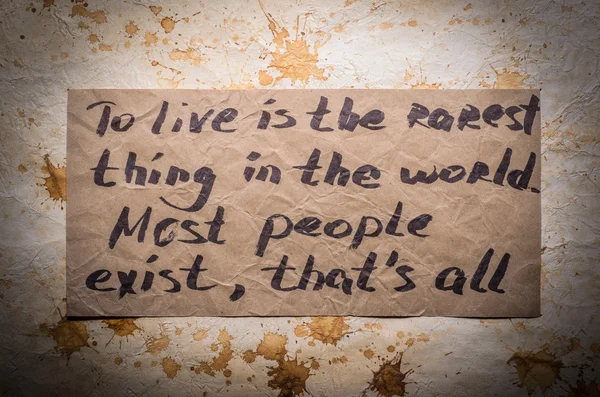 To live is the rarest
thing in the world.
Most people
exist, that's all